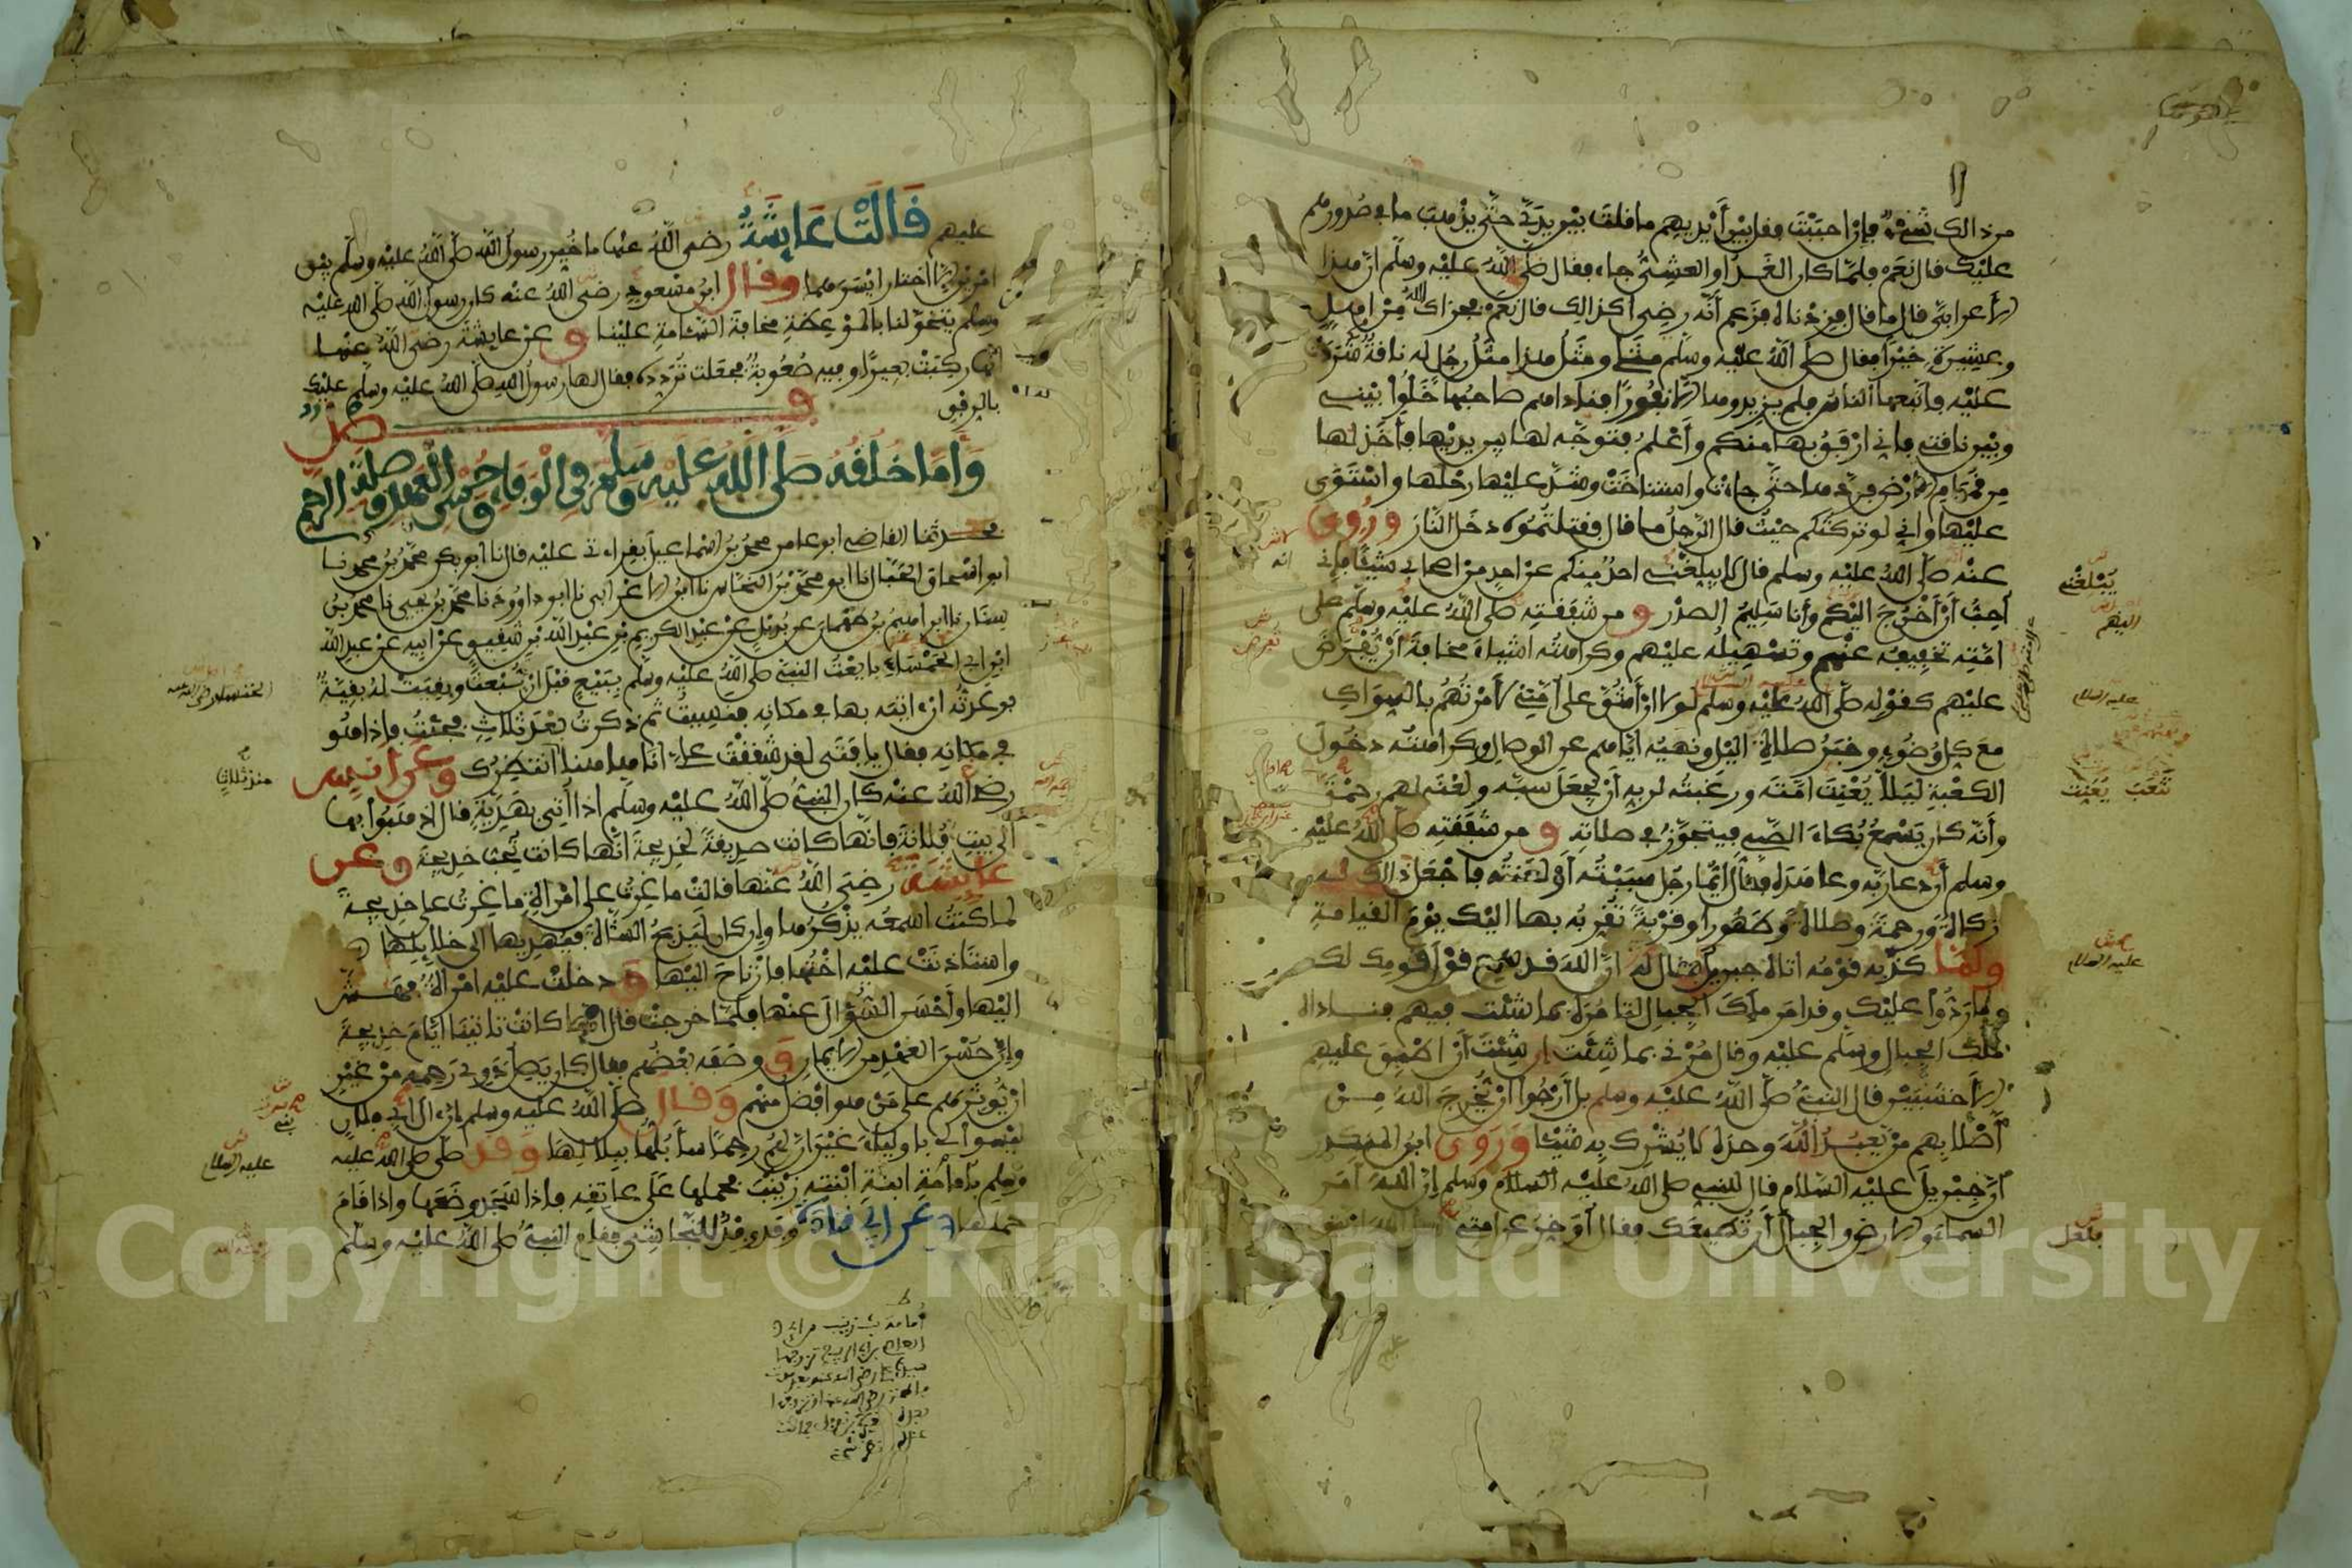 من ذالك شيء فإذا احببت فقل بين أيديهم ما قلت بين يدي حتى يذهب ما في صدورهم
عليك قال نعم فلما كان الغد أو العشي جاء فقال صلى الله عليه وسلم إن هذا
الأعرابي قال ما قال فزدناه فزعم أنه رضي أكذالك قال نعم فجزاك الله من أهل
وعشيرة خيرا فقال صلى الله عليه وسلم مثلي ومثل هذا مثل رجل له ناقة شردت
عليه فاتبعها الناس فلم يزيدوها إلا نفورا فناداهم صاحبها خلوا بيني
وبين ناقتي فإني ارفق بها منكم وأعلم فتوجه لها بين يديها فأخذ لها
من قمام الارض فردها حتى جاءت واستناخت وشد عليها رحلها واستوى
عليها وإني لو تركتكم حيث قال الرجل ما قال فقتلتموه دخل النار وروي
عنه صلى الله عليه وسلم قال لا يبلغني احد منكم عن احد من اصحابي شيئا فإني
أحب أن أخرج اليكم وأنا سليم الصدر و من شفقته صلى الله عليه وسلم على
امته تخفيفه عنهم وتسهيله عليهم وكراهته اشياء مخافة أن تفرض
عليهم كقوله صلى الله عليه وسلم لولا أن أشق على أمتي لأمرتهم بالسواك
مع كل وضوء وخبر صلاة الليل ونهيه اياهم عن الوصال وكراهته دخول
الكعبة ليلا يعنت امته ورغبته لربه أن يجعل سبه ولعنه لهم رحمة
وأنه كان يسمع بكاء الصبي فيتجوز في صلاته و من شفقته صلى الله عليه
وسلم أن دعا ربه وعاهده فقال أيما رجل سببته أو لعنته فاجعل ذالك له
زكاة ورحمة وصلاة وطهورا وقربة تقربه بها اليك يوم القيامة
ولما كذبه قومه اتاه جبريل فقال له ان الله قد سمع قول قومك لك
وما ردوا عليك وقد امر ملك الجبال لتامره بما شئت فيهم فناداه
ملك الجبال وسلم عليه وقال مرني بما شئت إن شئت أن اطبق عليهم
الأخشبين قال النبي صلى الله عليه وسلم بل أرجوا أن يخرج الله من
أصلابهم من يعبد الله وحده لا يشرك به شيئا وروى ابن المنكدر
أن جبريل عليه السلام قال للنبي صلى الله عليه السلام وسلم إن الله امر
السماء والارض والجبال أن تطيعك فقال أوخر عن امتي
يبلغني
اليهم
عليه السلام
تتعب يعنت
عليه السلام
عليهم قالت عايشة رضي الله عنها ما خير رسول الله صلى الله عليه وسلم بين
امرين الا اختار ايسرهما وقال ابن مسعود رضي الله عنه كان رسول الله صلى الله عليه
وسلم يتخولنا بالموعظة مخافة السئامة علينا و عن عايشة رضي الله عنها
انها ركبت بعيرا وفيه صعوبة فجعلت تردده فقال لها رسول الله صلى الله عليه وسلم عليك
بالرفق
فصل
وأما خلقه صلى الله عليه وسلم في الوفاء وحسن العهد وصلة الرحم
حدثنا القاضي ابو عامر محمد بن اسماعيل بقراءتي عليه قال نا ابو بكر محمد بن محمد نا
ابو اسحاق الحبال نا ابو محمد بن النحاس نا ابن الاعرابي نا ابو داوود نا محمد بن يحيى نا محمد بن
سنان نا ابراهيم بن طهمان عن بديل عن عبد الكريم بن عبد الله بن شقيق عن ابيه عن عبد الله
ابن ابي الخمساء بايعت النبي صلى الله عليه وسلم ببيع قبل أن يبعث وبقيت له بقية
فوعدته أن اتيه بها في مكانه فنسيت ثم ذكرت بعد ثلاث فجئت فإذا هو
في مكانه فقال يا فتى لقد شققت علي أنا هاهنا منذ انتظرك وعن انس
رضي الله عنه كان النبي صلى الله عليه وسلم اذا أتي بهدية قال اذهبوا بها
الى بيت فلانة فإنها كانت صديقة لخديجة انها كانت تحب خديجة وعن
عايشة رضي الله عنها قالت ما غرت على امرأة ما غرت على خديجة
لما كنت اسمعه يذكرها وإن كان ليذبح الشاة فيهديها الى خلائلها
واستاذنت عليه اختها فارتاح اليها و دخلت عليه امرأة فهش
اليها وأحسن السؤال عنها فلما خرجت قال انها كانت تاتينا ايام خديجة
وإن حسن العهد من الايمان و وصفه بعضهم فقال كان يصل ذوي رحمه من غير
أن يوثرهم على من هو افضل منهم وقال صلى الله عليه وسلم إن آل ابي فلان
ليسوا لي باولياء غير أن لهم رحما سأبلها ببلالها وقد صلى صلى الله عليه
وسلم بأمامة ابنة ابنته زينب يحملها على عاتقه فإذا سجد وضعها واذا قام
حملها وعن ابي قتادة وفد وفد للنجاشي فقام النبي صلى الله عليه وسلم
منذ ثلاث
عليه السلام
Copyright © King Saud University